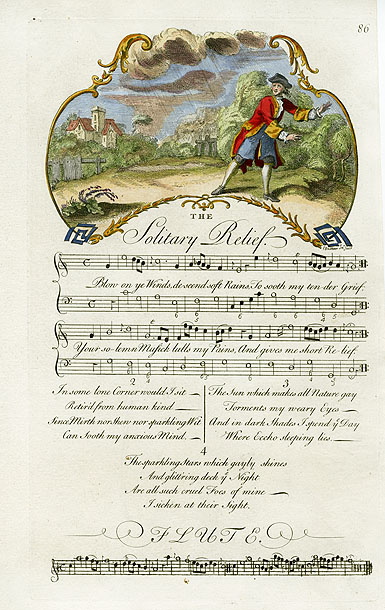 86
THE
Solitary Relief
Blow on ye Winds, descend soft Rains, To sooth my tender Grief,
Your solemn Musick lulls my Pains, And gives me short Relief.
2
In some lone Corner would I sit
Retir'd from human kind
Since Mirth nor shew nor sparkling Wit
Can Sooth my anxious Mind.
3
The Sun which makes all Nature gay
Torments my weary Eyes
And in dark Shades I spend ẏ Day
Where Eccho sleeping lies.
4
The sparkling Stars which gayly shines
And glitt'ring deck ẏ Night
Are all such cruel Foes of mine
I sicken at their Sight.
FLUTE.